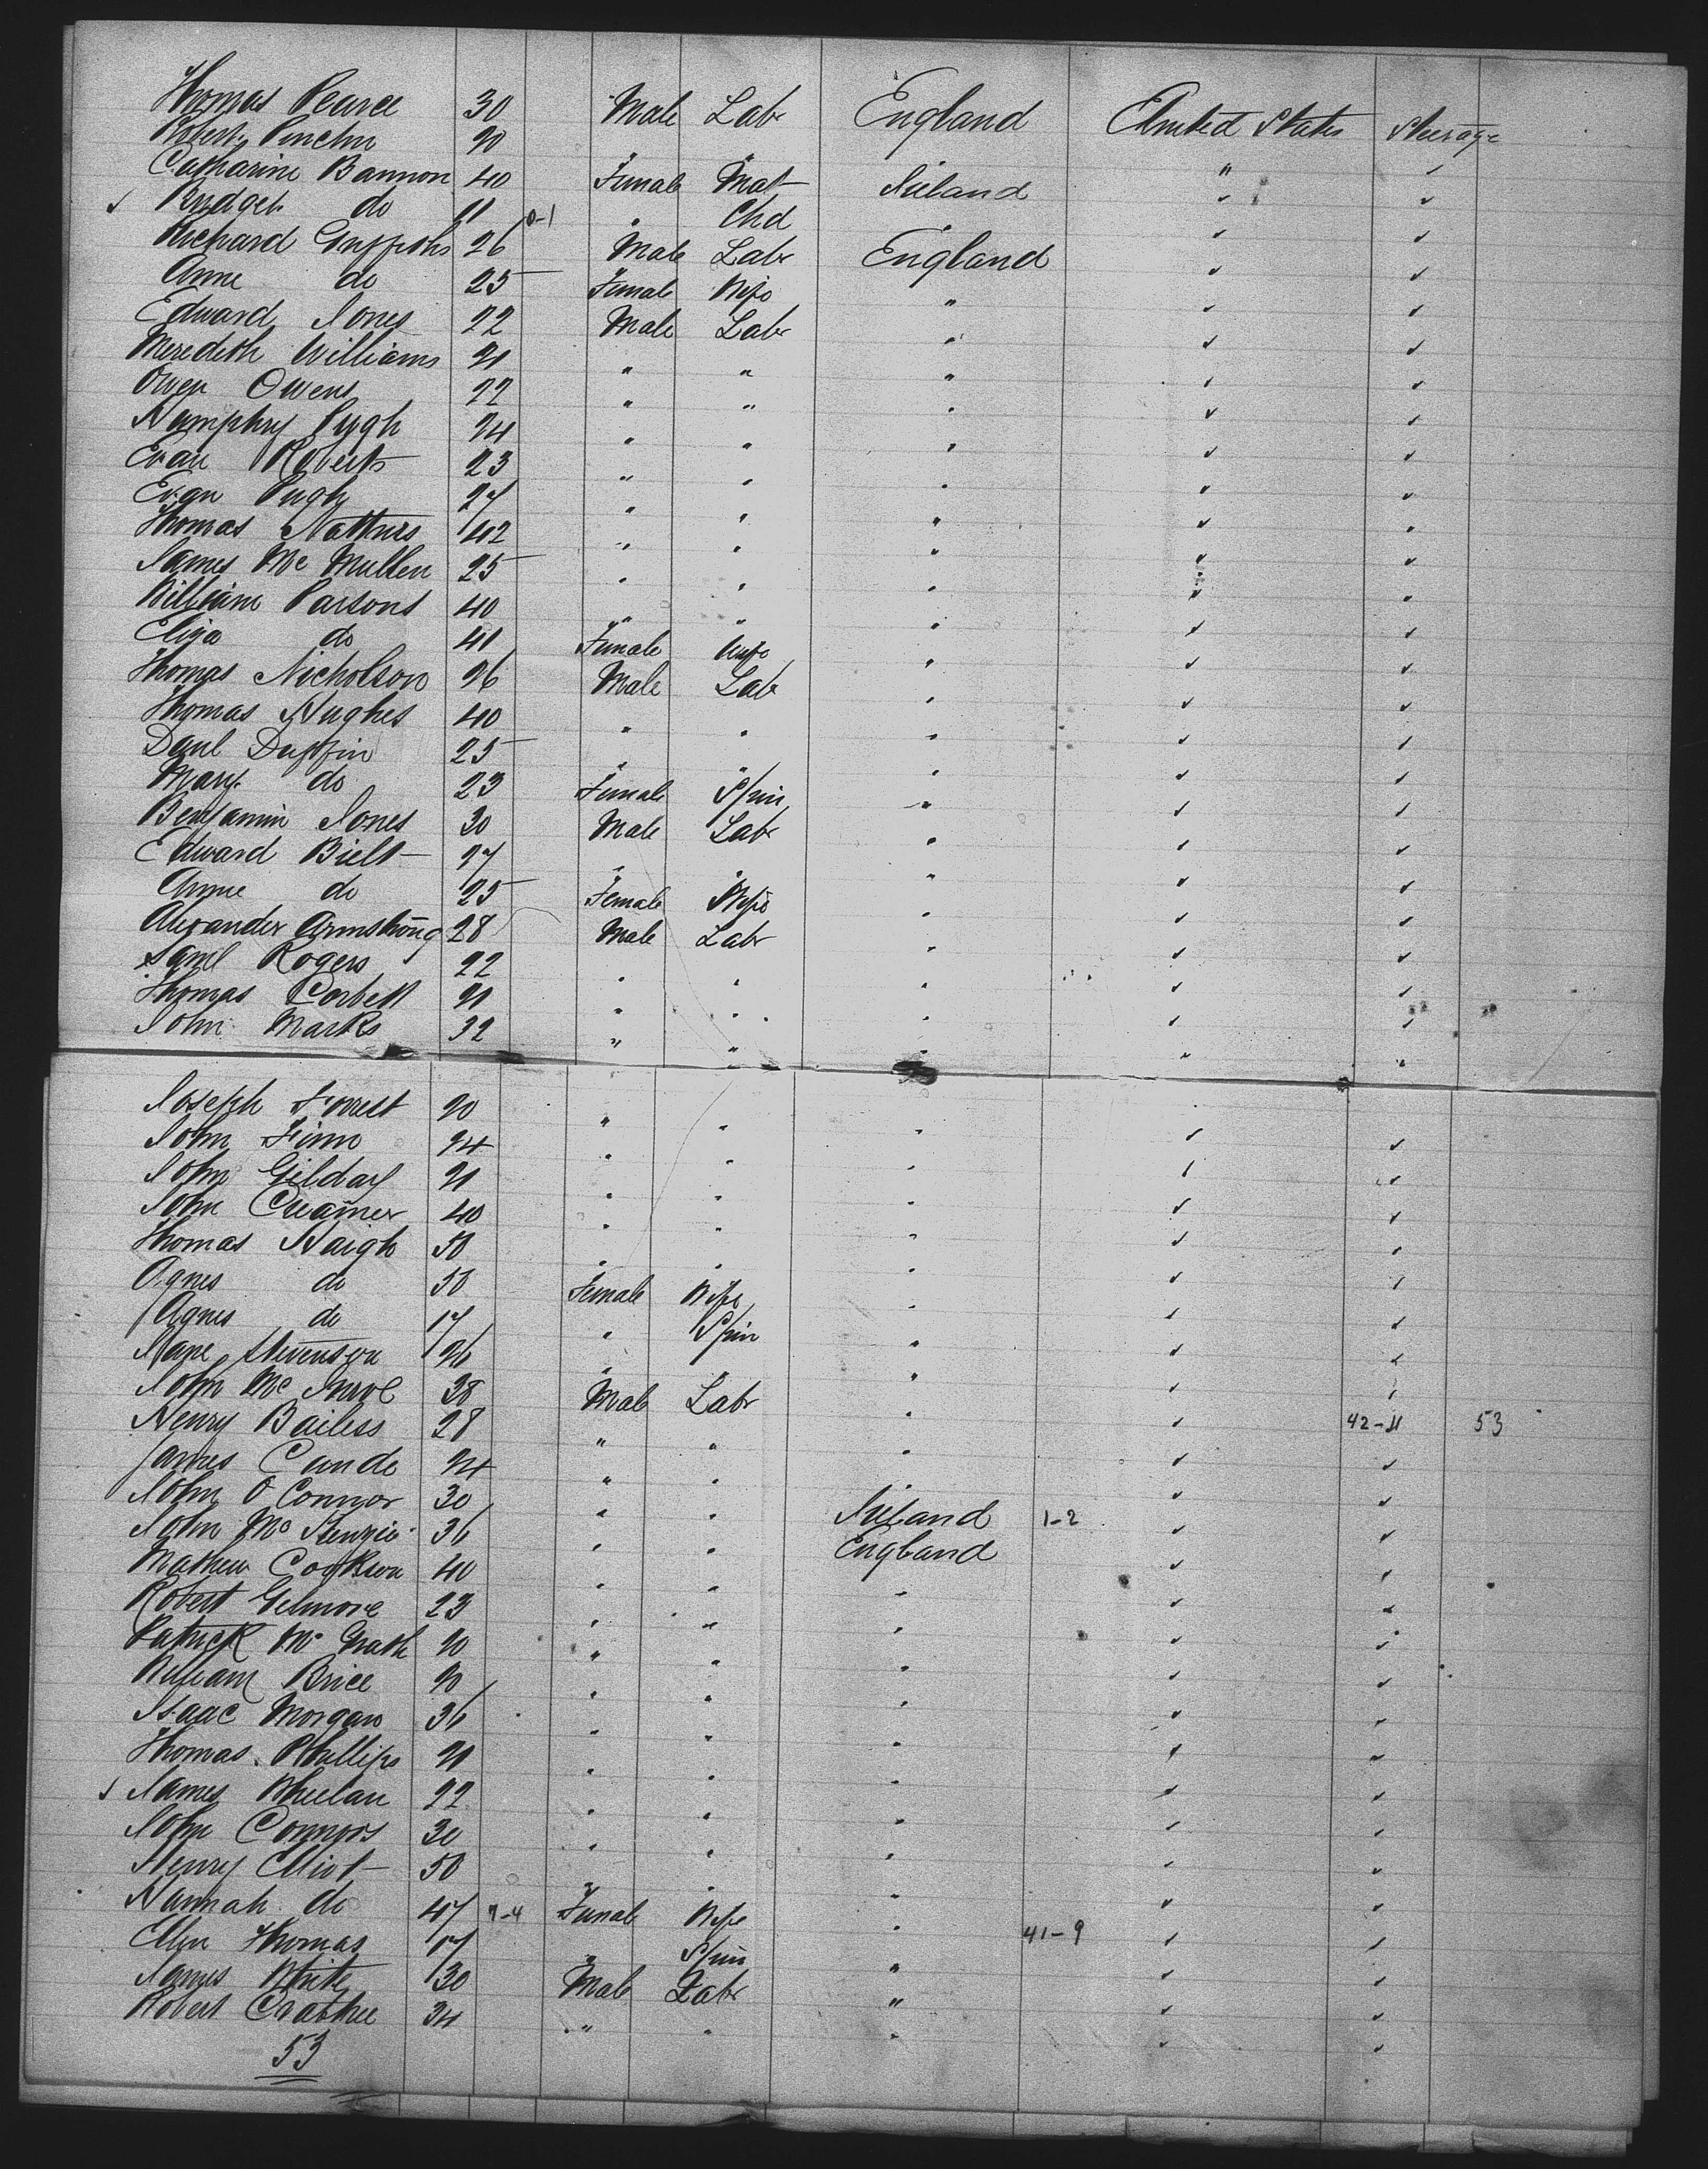 Thomas Pearce 30 Male Labr England United States Steerage
Robert 20 " " " " "
Catharine Bannon 40 Female Mat Ireland " "
Bridget do 11 0-1 " Chd " " "
Richard Griffiths 26 Male Labr England " "
Anne do 25 Female Wife " " "
Edward Jones 22 Male Labr " " "
Meredith Williams 21 " " " " "
Owen Owens 22 " " " " "
Humphry Pugh 24 " " " " "
Evan Roberts 23 " " " " "
Evan Pugh 27 " " " " "
Thomas 42 " " " " "
James Mc Mullen 25 " " " " "
William Parsons 40 " " " " "
Eliza do 41 Female Wife " " "
Thomas Nicholson 26 Male Lab " " "
Thomas Hughes 40 " " " " "
Danl Duffin 25 " " " " "
Mary do 23 Female Spin " " "
Benjamin Jones 30 Male Labr " " "
Edward 27 " " " " "
Anne do 25 Female Wife " " "
Alexander Armstrong 28 Male Labr " " "
Saml Rogers 22 " " " " "
Thomas Corbett 21 " " " " "
John Marks 32 " " " " "
Joseph Forrest 20 " " " " "
John Finn 24 " " " " "
John 21 " " " " "
John Creamer 40 " " " " "
Thomas Haigh 50 " " " " "
Agnes do 50 Female Wife " " "
Agnes do 17 " Spin " " "
Jane Stevenson 26 " " " " "
John Mc 38 Male Labr " " "
Henry Bailess 28 " " " " 42-11 53
James 24 " " " " "
John O Connor 30 " " Ireland 1-2 " "
John Mc Kenzie 36 " " England " "
Mathew 40 " " " " "
Robert Gilmore 23 " " " " "
Patrick Mc Grath 20 " " " " "
William Brice 20 " " " " "
Isaac Morgan 36 " " " " "
Thomas Phillips 21 " " " " "
James Wheelan 22 " " " " "
John Connors 30 " " " " "
Henry Elliot 50 " " " " "
Hannah do 47 7-4 Female Wife " " "
Ellen Thomas 17 " Spin " 41-9 " "
James White 30 Male Labr " " "
Robert Crabtree 34 " " " " "
53